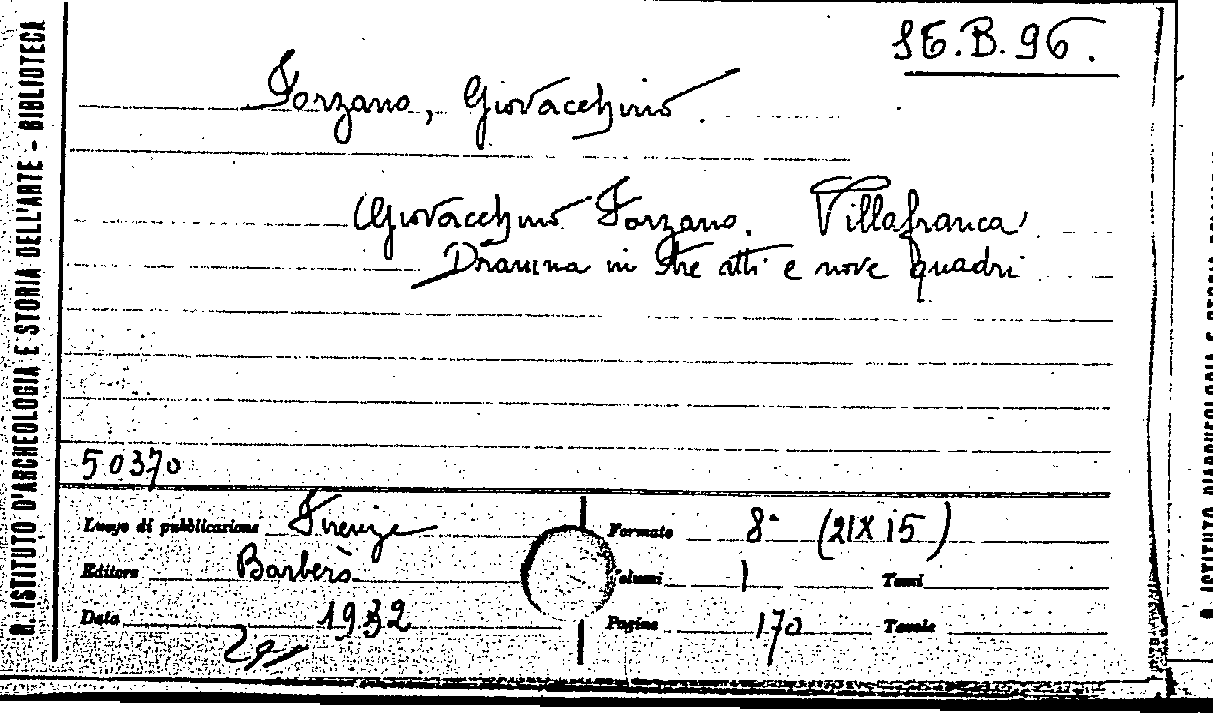 R. ISTITUTO D'ARCHEOLOGIA E STORIA DELL'ARTE - BIBLIOTECA
SE.B.96.
Forzano, Giovacchino.
Giovacchino Forzano. Villafranca
Dramma in tre atti e nove quadri
50370
Luogo di pubblicazione Firenze
Formato 8º (21X15)
Editore Barbèra
Volumi 1 Tomi
Data 1932
Pagine 170 Tavole